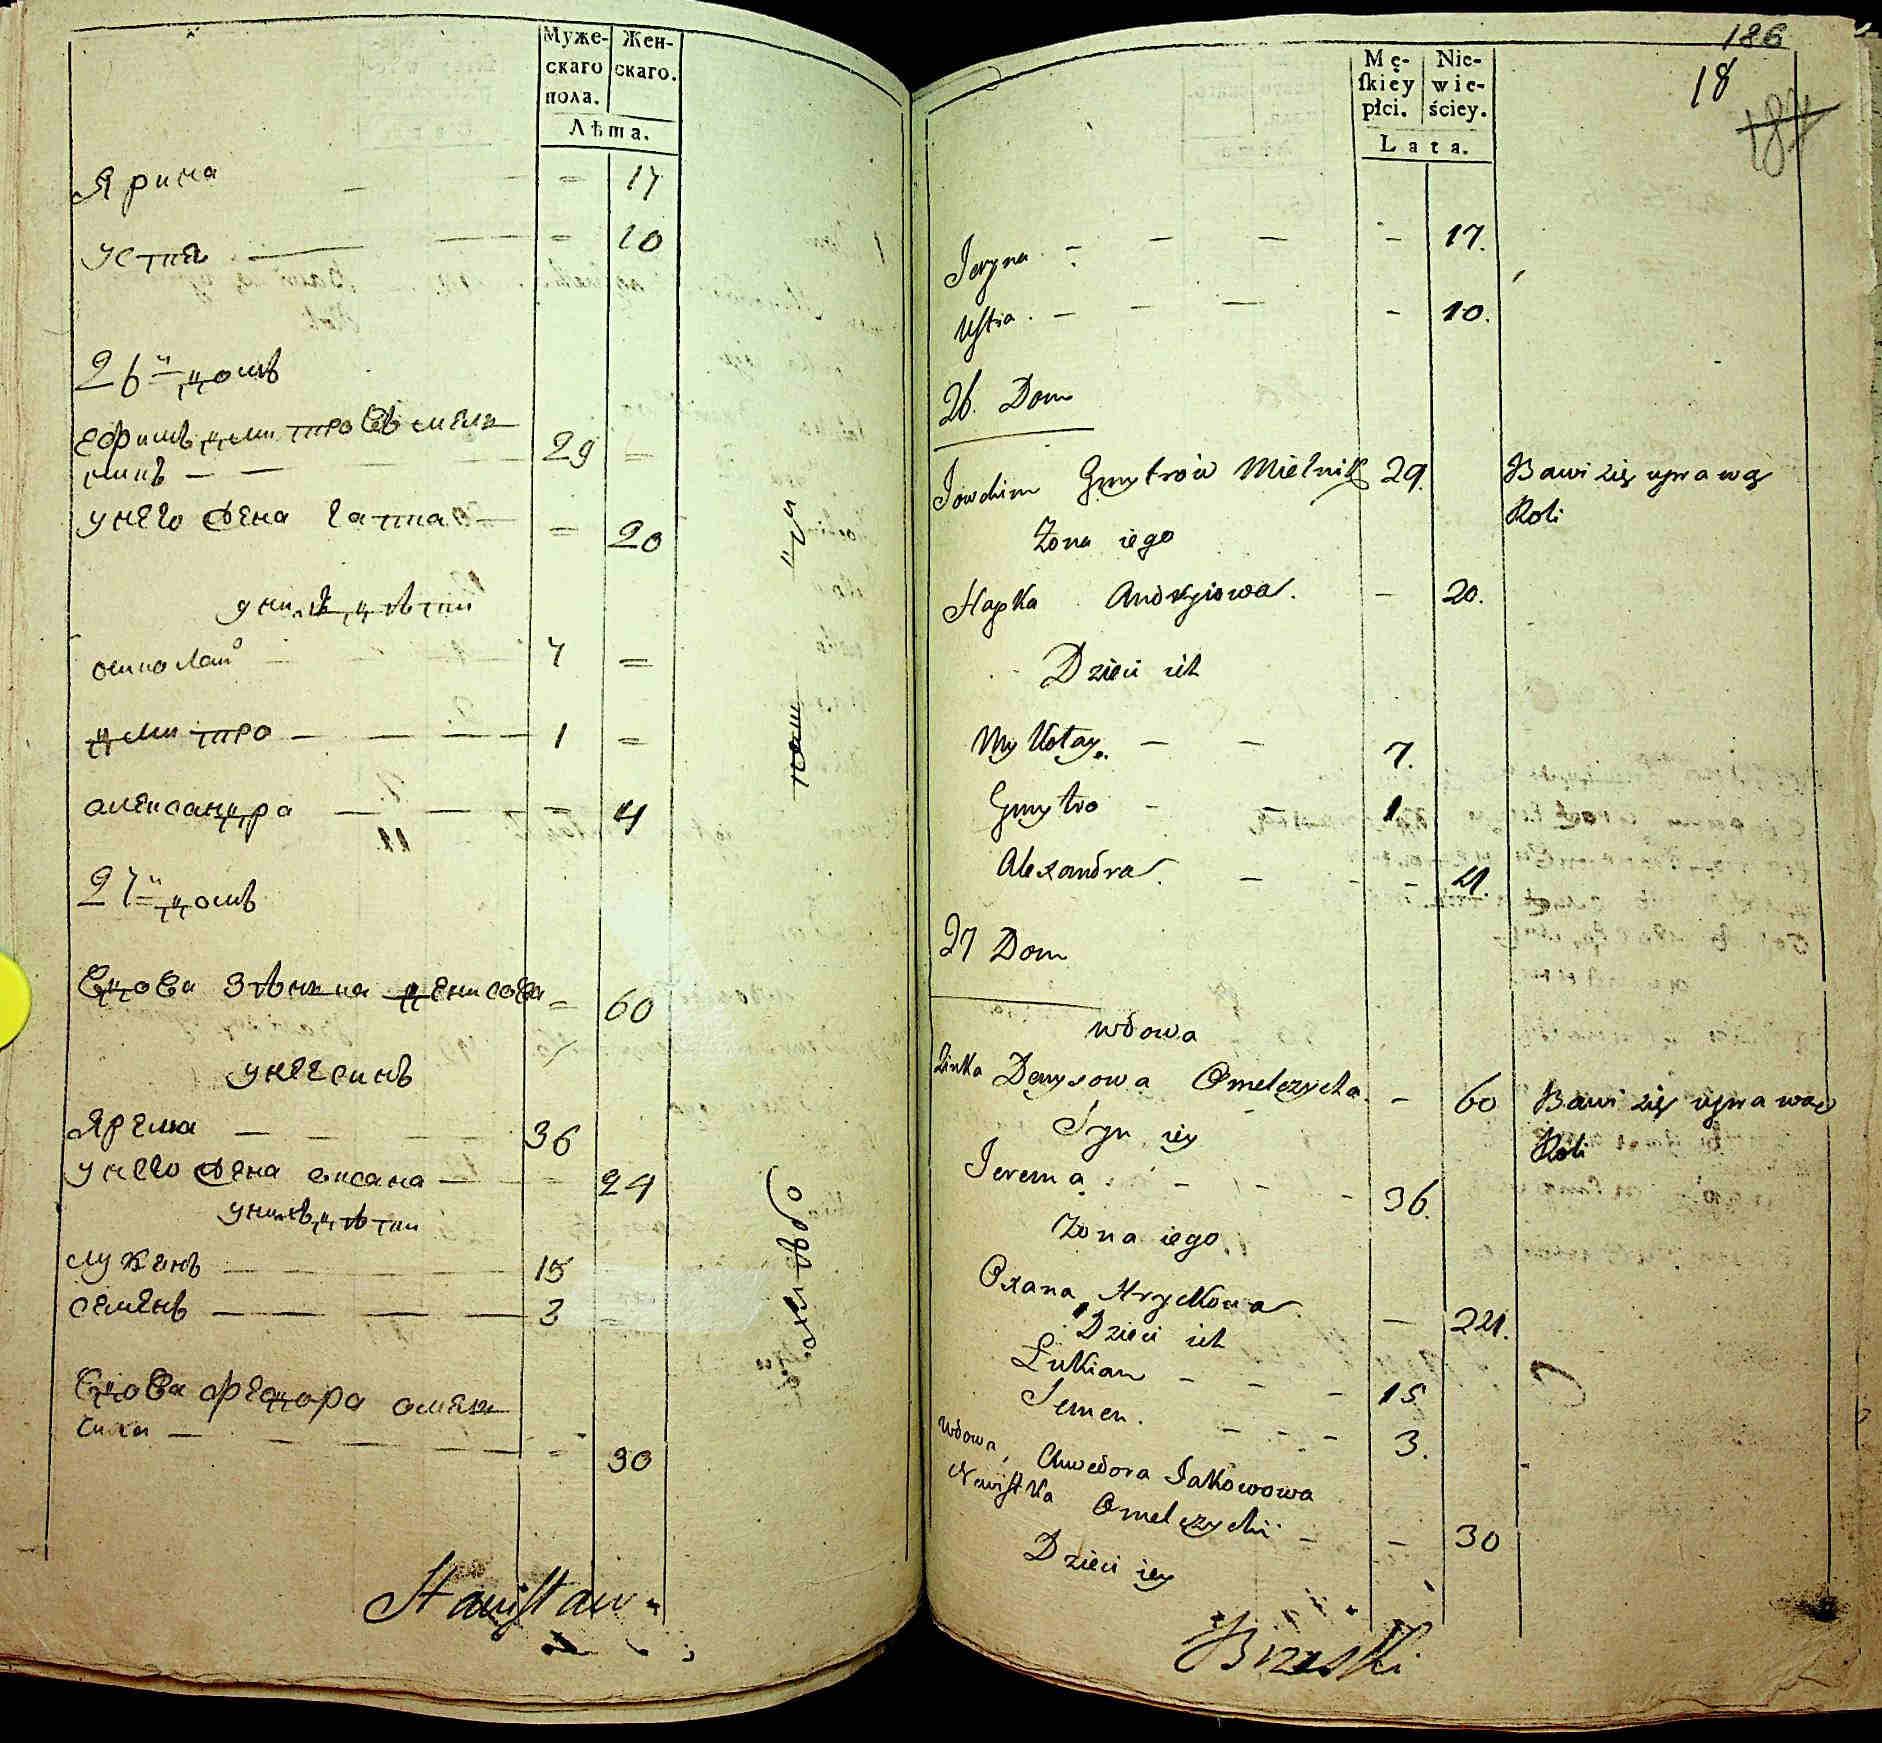 Муже-
скаго
пола.
Жен-
скаго.
Лѣта.
Ярина — — = 17
устия — — = 10
26й домъ
ефимъ дмитровъ мелн
никъ — — 29 =
унего жена гапка — = 20
унихъ дѣти
миколай — — 7 =
дмитро — — — 1 =
александра — — — = 4
27й домъ
вдова зѣнька денисова = 60
унее синъ
Ярема — — — 36
унего жена оксана — = 24
унихъ дѣти
лукянъ — — — 15
семенъ — — — 3
вдова федора омель
чиха — — — = 30
Stanisław
186
18
187
Mę-
skiey
płci.
Nie-
wie-
ściey.
Lata.
Jeryna — — — 17.
Ustia — — — 10.
26. Dom
Jowchim Gmytrów Mielnik 29. Bawi się uprawą
Roli
Żona iego
Hapka Andryiowa. — 20.
Dzieci ich
Mykołay. — — 7.
Gmytro — — 1
Alexandra. — — — 4.
27 Dom
wdowa
Zinka Denysowa Omelczycha. — 60 Bawi się uprawą
Roli
Syn iey
Jerema — — — 36.
Żona iego
Oxana Hryckowa — 24.
Dzieci ich
Łukian — — — 15
Semen. — — — 3.
wdowa, Chwedora Jakowowa
Newistka Omelczychi — — 30
Dzieci iey
Brzeski